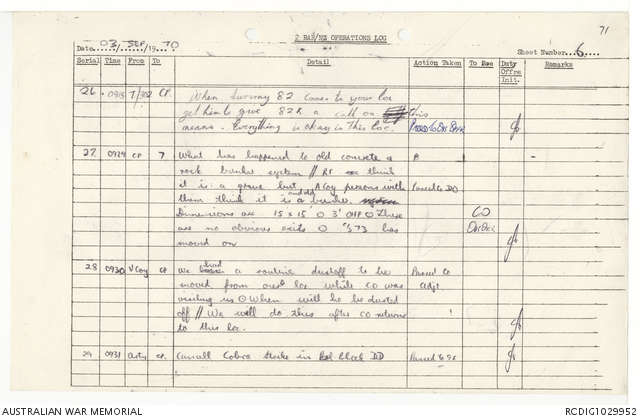 71
2 RAR/NZ OPERATIONS LOG
Date 03 / SEP / 1970 Sheet Number 6
Serial Time From To Detail Action Taken To See Duty Offrs Init. Remarks
26 0915 T/32 CP. When Sunray 82 comes to your loc
get him to give 82R a call on this
means. Everything is okay in this loc. Passed to
27 0924 CP 7 What has happened to old concrete &
rock bunker system // Rf think
it is a grave but A Coy persons with Passed to DO
them think it is a bunker.
Dimensions are 15 x 15 O 3' OHP O There CO
are no obvious exits O 573 has
moved on
28 0930 V Coy CP We had a routine dustoff to be Passed to
moved from our loc while CO was Adjt.
visiting us O When will he be dusted
off // We will do this after CO returns
to this loc.
29 0931 Arty CP. Cancell Cobra Strike in Bol Block DD Passed to
AUSTRALIAN WAR MEMORIAL RCDIG1029952